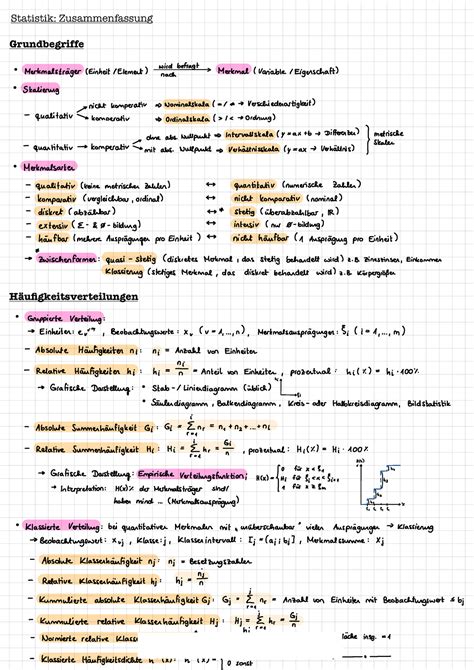 Statistik: Zusammenfassung
Grundbegriffe
• Merkmalsträger (Einheit / Element) wird befragt nach → Merkmal (Variable / Eigenschaft)
• Skalierung
- qualitativ
nicht komparativ ⇒ Nominalskala (= / ≠ → Verschiedenartigkeit)
komparativ ⇒ Ordinalskala (> / < → Ordnung)
- quantitativ → komparativ
ohne abs. Nullpunkt ⇒ Intervallskala (y = ax + b → Differenz)
mit abs. Nullpunkt ⇒ Verhältnisskala (y = ax → Verhältnis)
metrische Skalen
• Merkmalsarten
- qualitativ (keine metrischen Zahlen) ↔ quantitativ (numerische Zahlen)
- komparativ (vergleichbar, ordinal) ↔ nicht komparativ (nominal)
- diskret (abzählbar) ↔* stetig (überabzählbar, ℝ)
- extensiv (Σ- & Ø-bildung) ↔ intensiv (nur Ø-bildung)
- häufbar (mehrere Ausprägungen pro Einheit) ↔ nicht häufbar (1 Ausprägung pro Einheit)
* → Zwischenformen: quasi-stetig (diskretes Merkmal, das stetig behandelt wird) z.B. Zinsen, Einkommen
Klassierung (stetiges Merkmal, das diskret behandelt wird) z.B. Körpergröße
Häufigkeitsverteilungen
• Gruppierte Verteilung:
→ Einheiten: , Beobachtungswerte: xᵥ (v = 1,...,n), Merkmalsausprägungen: ξᵢ (i = 1,...,m)
- Absolute Häufigkeiten nᵢ: nᵢ = Anzahl von Einheiten
- Relative Häufigkeiten hᵢ: hᵢ = nᵢ/n = Anteil von Einheiten, prozentual: hᵢ(%) = hᵢ · 100%
→ Grafische Darstellung: • Stab-/Liniendiagramm (üblich)
• Säulendiagramm, Balkendiagramm, Kreis- oder Halbkreisdiagramm, Bildstatistik
- Absolute Summenhäufigkeit Gᵢ: Gᵢ = Σ nᵣ = n₁ + n₂ + ... + nᵢ
- Relative Summenhäufigkeit Hᵢ: Hᵢ = Σ hᵣ = Gᵢ/n, prozentual: Hᵢ(%) = Hᵢ · 100%
→ Grafische Darstellung: Empirische Verteilungsfunktion: H(x) = { 0 für x < ξ₁
Hᵢ für ξᵢ ≤ x < ξᵢ₊₁
1 für x ≥ ξₘ
→ Interpretation: H(x)% der Merkmalsträger sind/
haben mind ... (Merkmalsausprägung)
• Klassierte Verteilung: bei quantitativen Merkmalen mit „unüberschaubar" vielen Ausprägungen → Klassierung
→ Beobachtungswert: xᵥⱼ, Klasse: j, Klassenintervall: Iⱼ = (aⱼ ; bⱼ], Merkmalssumme: Xⱼ
- Absolute Klassenhäufigkeit nⱼ: nⱼ = Besetzungszahlen
- Relative Klassenhäufigkeit hⱼ: hⱼ = nⱼ/n
- Kummulierte absolute Klassenhäufigkeit Gⱼ: Gⱼ = Σ nᵣ = Anzahl von Einheiten mit Beobachtungswert ≤ bⱼ
- Kummulierte relative Klassenhäufigkeit Hⱼ: Hⱼ = Σ hᵣ = Gⱼ/n
- Normierte relative Klass
läche insg. = 1
- Klassierte Häufigkeitsdichte
0 sonst